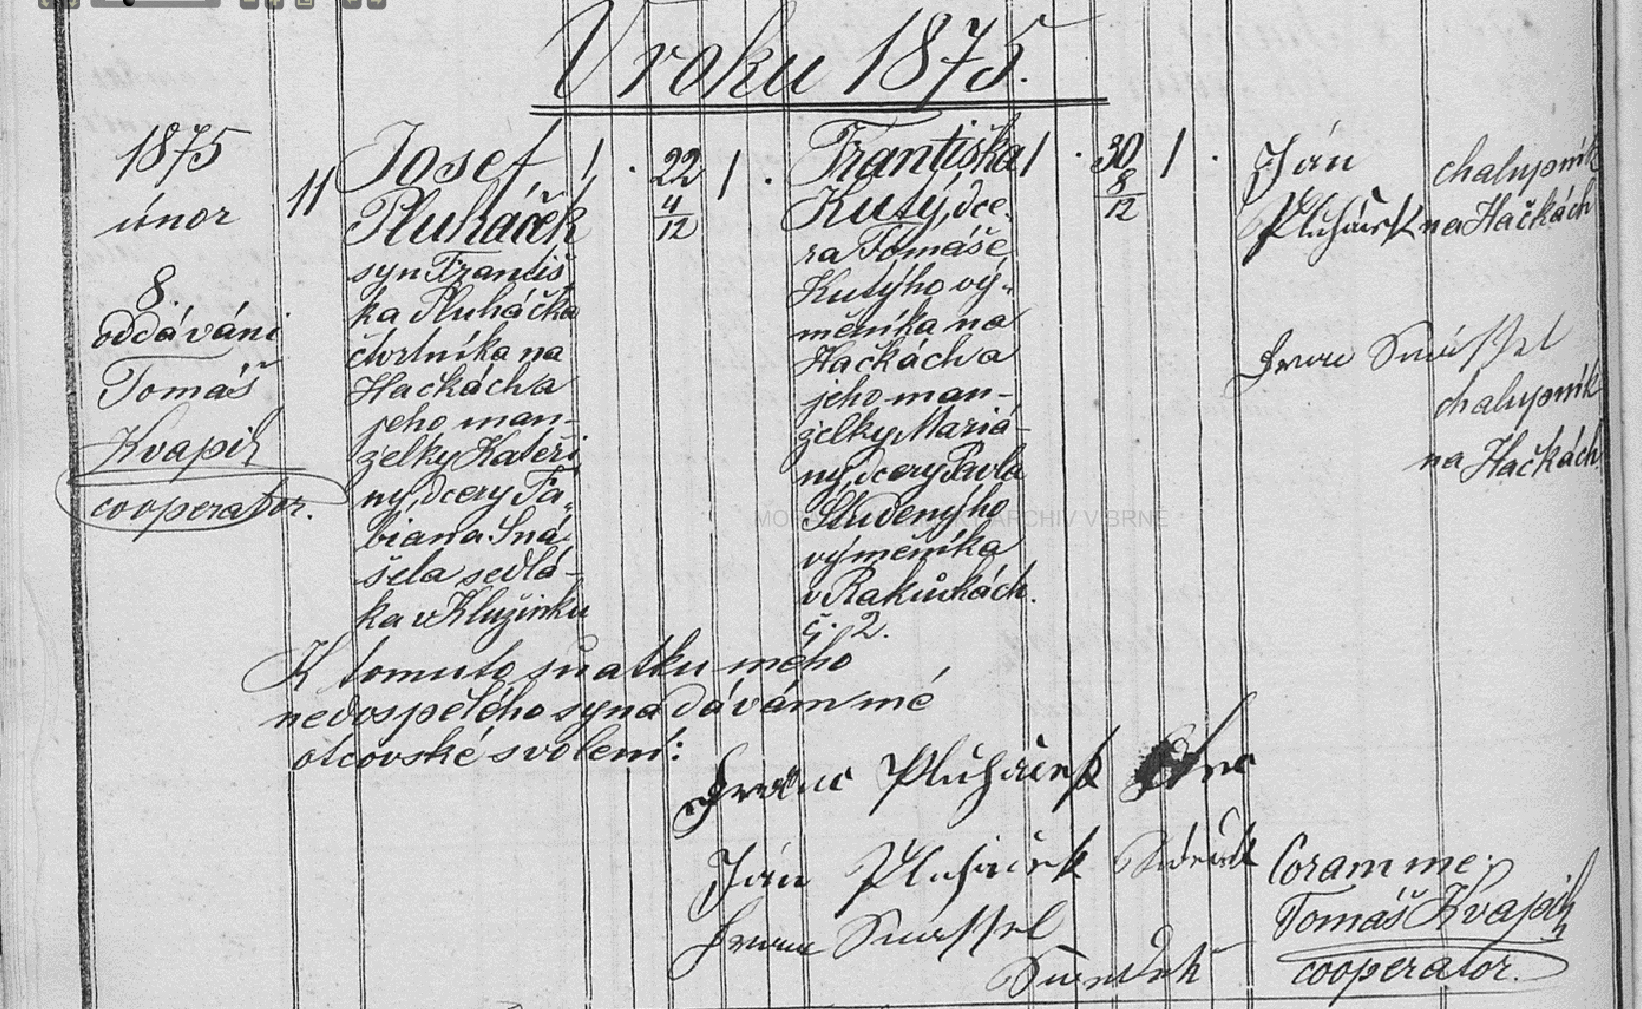 V roku 1875.
1875
únor
8.
oddávání
Tomáš
Kvapil
cooperator.
11
Josef
Pluháček
syn Františ
ka Pluháčka
čtvrtníka na
Hačkách a
jeho man-
želky Kateři
ny, dcery Fa-
biana Sná
šela sedlá-
ka v Klužínku
1 . 22 4/12 1 .
Františka
Kutý, dce-
ra Tomáše
Kutýho vý-
měníka na
Hačkách a
jeho man-
želky Mariá-
ny, dcery Pavla
Studenýho
výměníka
v Rakůvkách.
č. 2.
1 . 30 8/12 1 .
Ján
Pluháček
chalupník
na Hačkách
Franc Snášsel
chalupník
na Hačkách
K tomuto sňatku mého
nedospělého syna dávám mé
otcovské svolení:
Franc Pluháček Otec
Ján Pluhácek Svědek
Franc Snassel
Swedek
Coram me:
Tomáš Kvapil
cooperator.
MORAVSKÝ ZEMSKÝ ARCHIV V BRNĚ